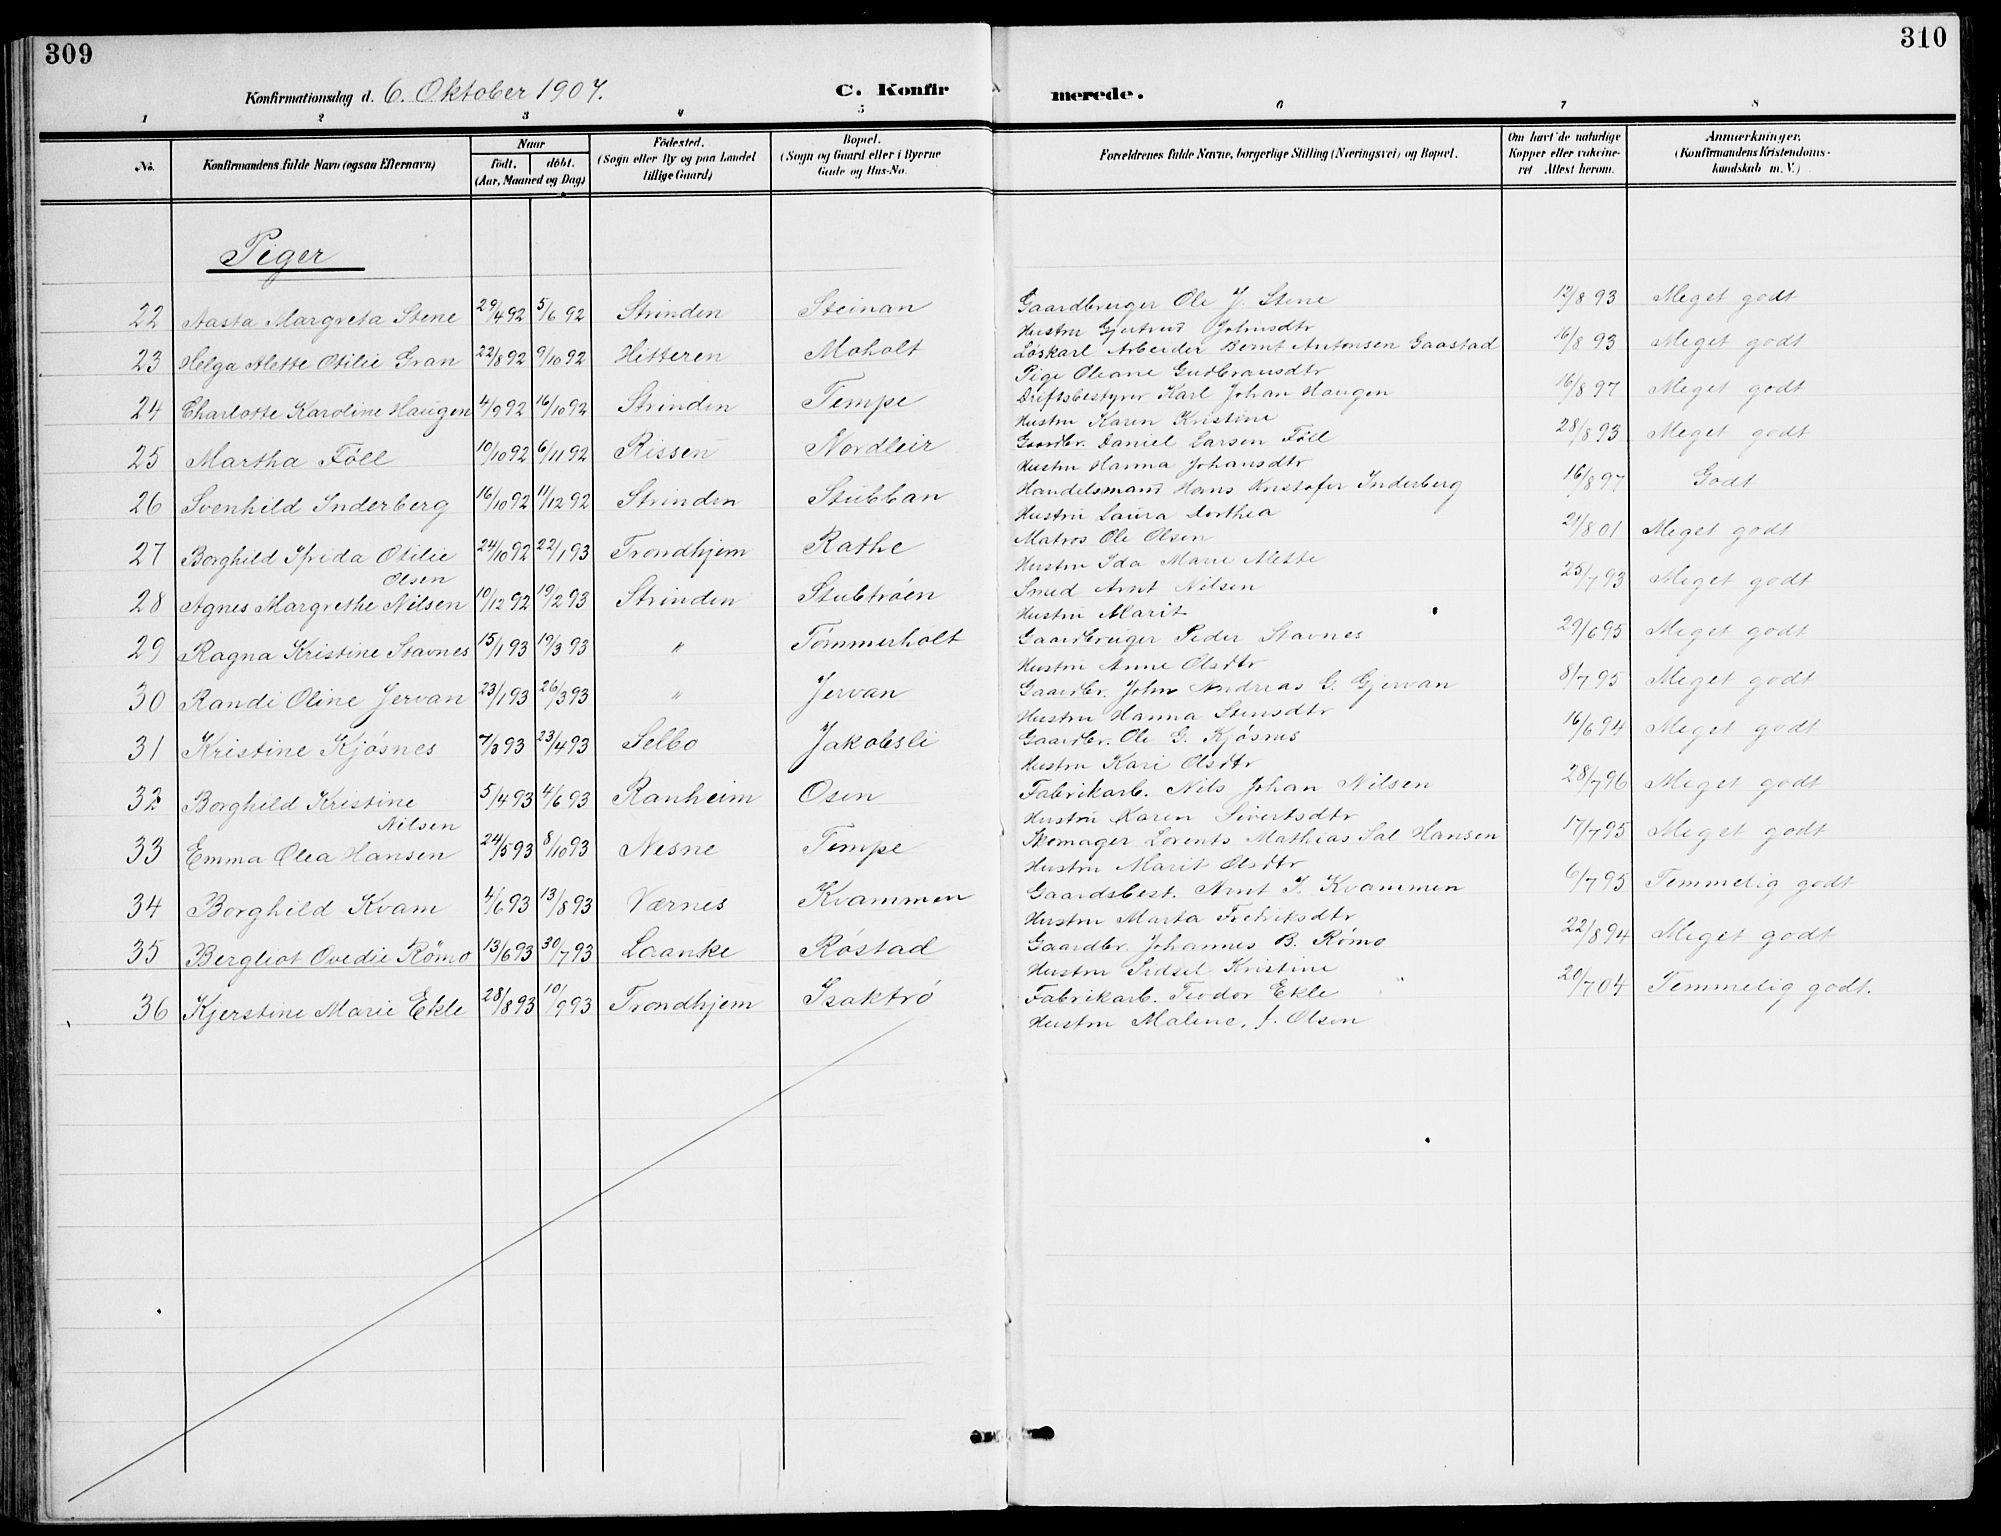 309
310
Konfirmationsdag d. 6. Oktober 1907.
C. Konfir
merede.
1 2 3 4 5 6 7 8
No.
Konfirmandens fulde Navn (ogsaa Efternavn)
Naar
født. døbt.
(Aar, Maaned og Dag)
Fødested.
(Sogn eller By og paa Landet
tillige Gaard)
Bopæl.
(Sogn og Gaard eller i Byerne
Gade og Hus-No.
Forældrenes fulde Navne, borgerlige Stilling (Næringsvei) og Bopæl.
Om havt de naturlige
Kopper eller vakcine-
ret Attest herom.
Anmærkninger.
(Konfirmandens Kristendoms-
kundskab m. V.)
Piger
22 Aasta Margreta Stene 29/4 92 5/6 92 Strinden Steinan Gaardbruger Ole J. Stene 12/8 93 Meget godt
Hustru Gjertrud Johnsdtr
23 Helga Alette Otilie Gran 22/8 92 9/10 92 Hitteren Moholt Løskarl Arbeider Bernt Antonsen Gaastad 16/8 93 Meget godt
Pige Oleane Gudbransdtr
24 Charlotte Karoline Haugen 4/9 92 16/10 92 Strinden Tempe Driftsbestyrer Karl Johan Haugen 16/8 97 Meget godt
Hustru Karen Kristine
25 Martha Føll 10/10 92 6/11 92 Rissen Nordleir Gaardbr. Daniel Larsen Føll 28/8 93 Meget godt
Hustru Hanna Johansdtr
26 Svenhild Inderberg 16/10 92 11/12 92 Strinden Stubban Handelsmand Hans Kristofer Inderberg 16/8 97 Godt
Hustru Laura Dorthea
27 Borghild Ifrida Otilie 24/10 92 22/1 93 Trondhjem Rathe Matros Ole Olsen 21/8 01 Meget godt
Olsen
Hustru Ida Marie Alette
28 Agnes Margrethe Nilsen 10/12 92 19/2 93 Strinden Stubtrøen Smed Arnt Nilsen 25/7 93 Meget godt
Hustru Marit
29 Ragna Kristine Stavnes 15/1 93 19/3 93 " Tømmerholt Gaardbruger Peder Stavnes 29/6 95 Meget godt
Hustru Anne Olsdtr
30 Randi Oline Jervan 23/1 93 26/3 93 " Jervan Gaardbr. John Andreas G. Gjervan 8/7 95 Meget godt
Hustru Hanna Stensdtr
31 Kristine Kjøsnes 7/3 93 23/4 93 Selbo Jakobsli Gaardbr. Ole G. Kjøsnes 16/6 94 Meget godt
Hustru Kari Olsdtr
32 Borghild Kristine 5/4 93 4/6 93 Ranheim Osen Fabrikarb. Nils Johan Nilsen 28/7 96 Meget godt
Nilsen
Hustru Karen Sivertsdtr
33 Emma Olea Hansen 24/5 93 8/10 93 Nesne Tempe Skomager Lorents Mathias Sal Hansen 17/7 95 Meget godt
Hustru Marit Olsdtr
34 Borghild Kvam 4/6 93 13/8 93 Værnes Kvammen Gaardsbest. Arnt J. Kvammen 6/7 95 Temmelig godt
Hustru Marta Fredriksdtr
35 Bergliot Ovedie Rømo 13/6 93 30/7 93 Laanke Røstad Gaardbr. Johannes B. Rømo 22/8 94 Meget godt
Hustru Sidsel Kristine
36 Kjerstine Marie Ekle 28/8 93 10/9 93 Trondhjem Isaktrø Fabrikarb. Teodor Ekle 20/7 04 Temmelig godt.
Hustru Malene, f. Olsen